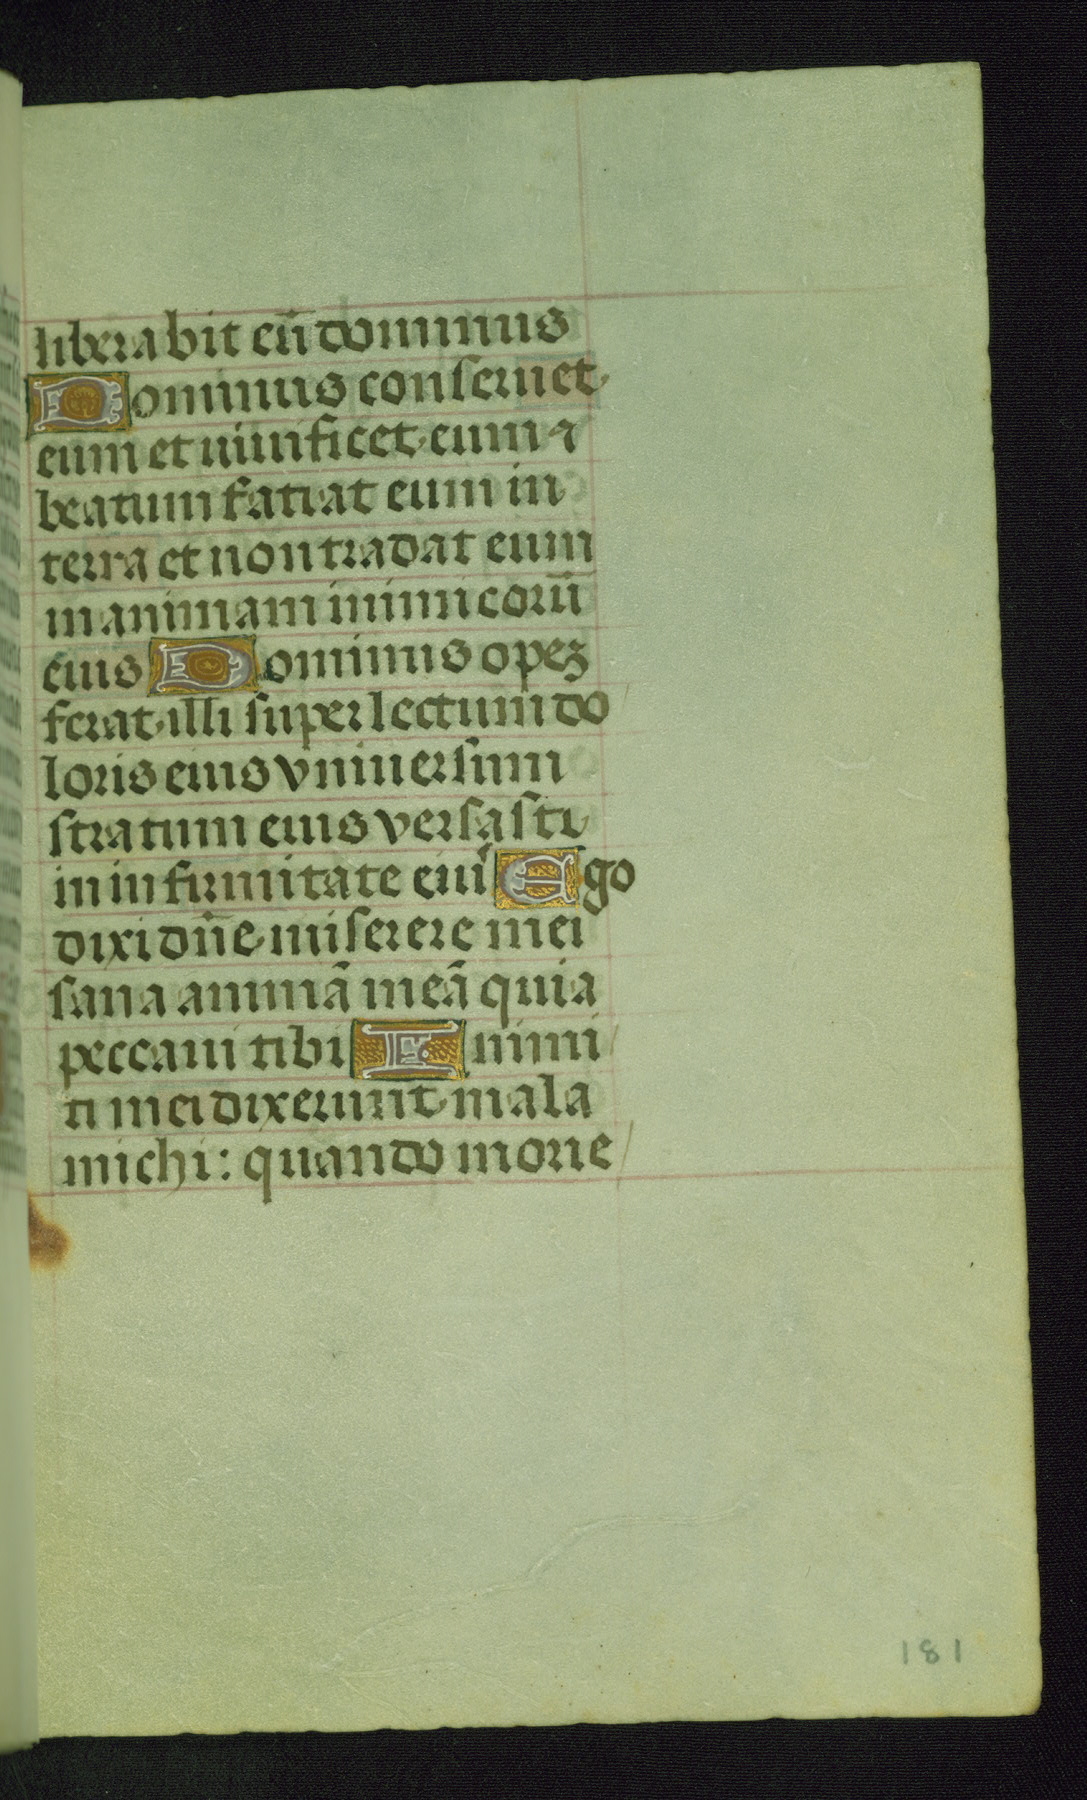 liberabit eū dominus
Dominus conseruet
eum et uiuificet eum ⁊
beatum fatiat eum in
terra et non tradat eum
in animam inimicorū
eius Dominus opeʒ
ferat illi super lectum do
loris eius vniuersum
stratum eius versasti
in infirmitate eius Ego
dixi dñe miserere mei
sana animā meā quia
peccaui tibi Inimi
ti mei dixerunt mala
michi: quando morie
181